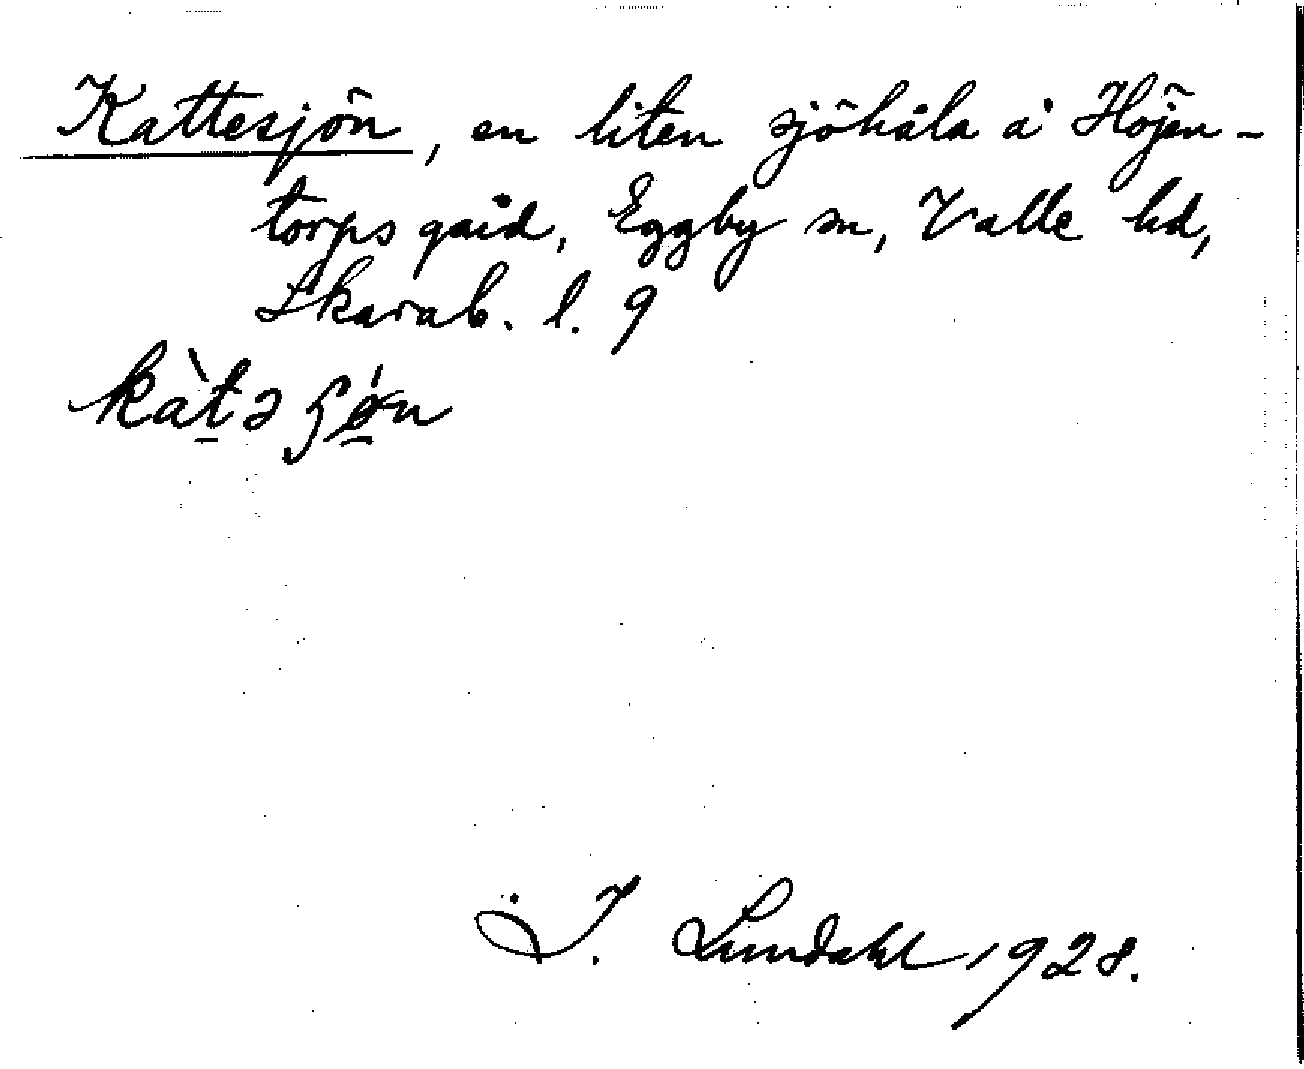 Kattesjön, en liten sjöhåla å Höjen-
torps gård, Eggby sn, Valle hd,
Skarab. l. 9
kàtə ʃǿn
I. Lundahl 1928.